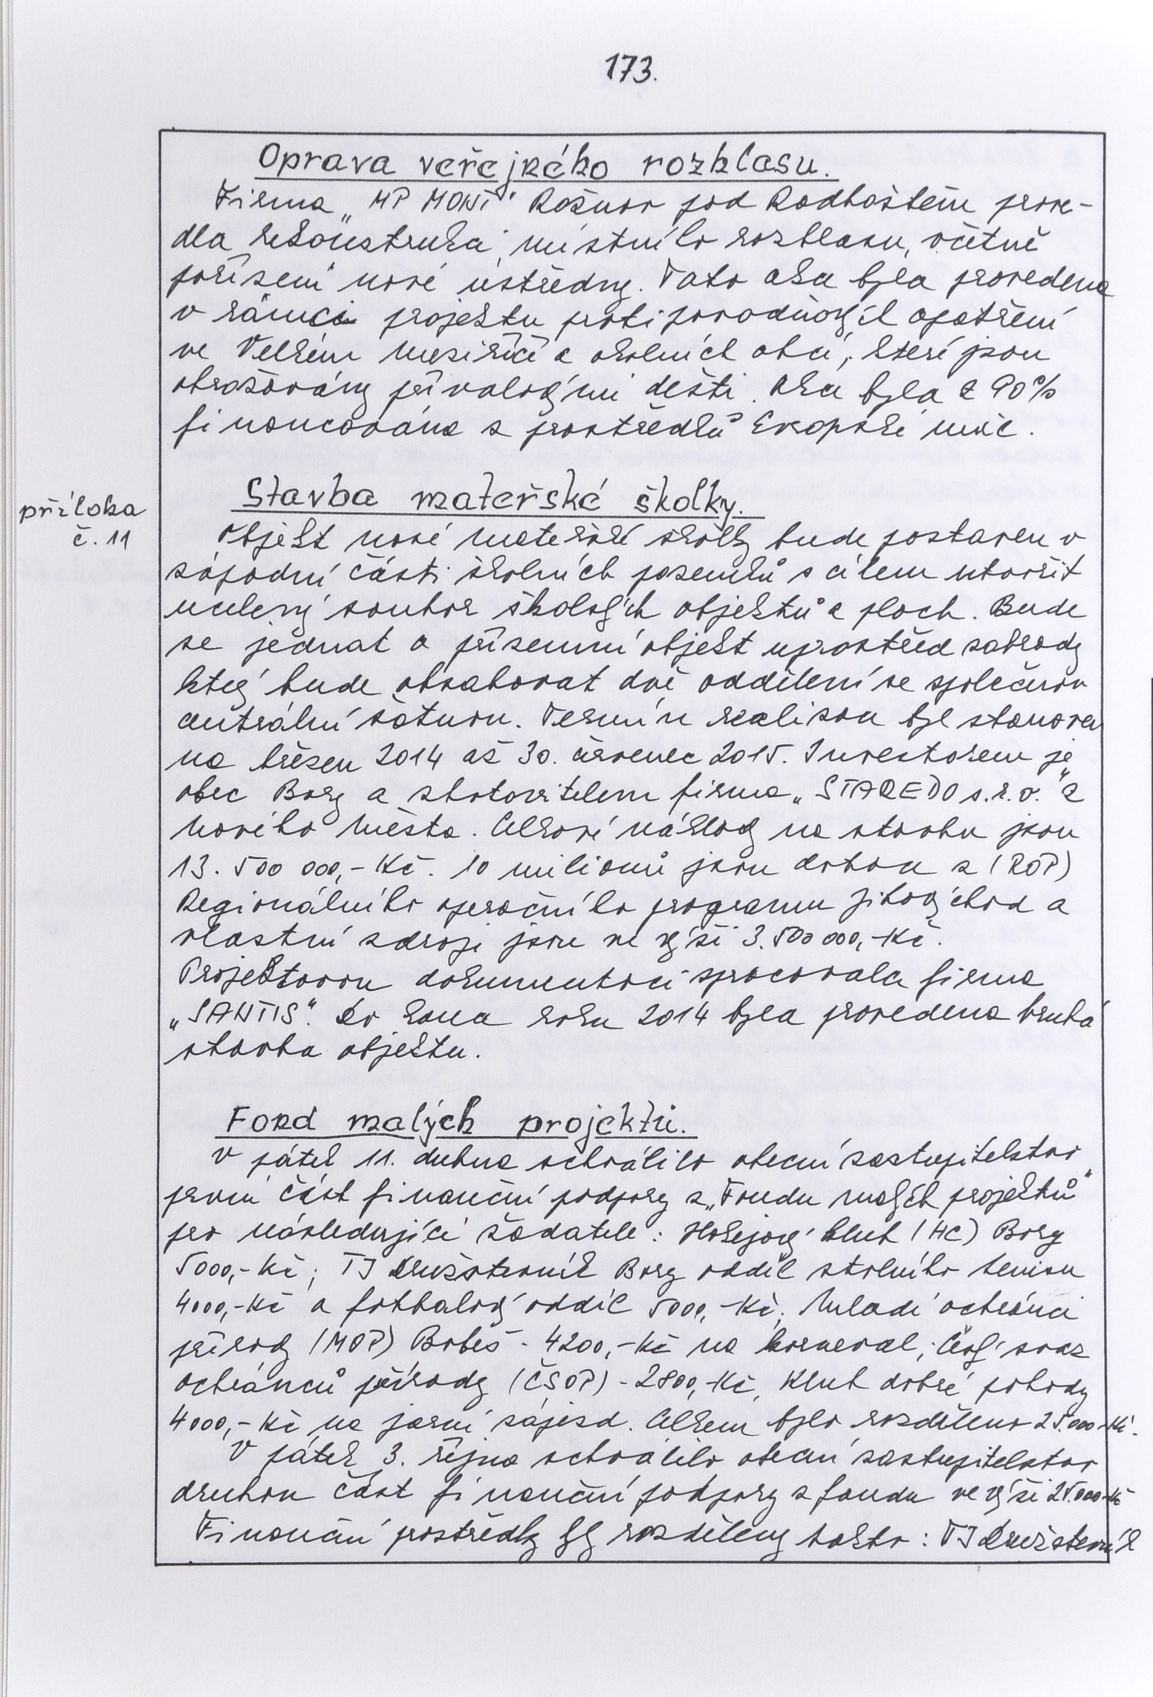 173.
Oprava veřejného rozhlasu.
Firma „MP MONT" Rožnov pod Radhoštěm prove-
dla rekonstrukci místního rozhlasu, včetně
pořízení nové ústředny. Tato akce byla provedena
v rámci projektu protipovodňových opatření
ve Velkém Meziříčí a okolních obcí, které jsou
ohrožovány přívalovými dešti. Akce byla z 90%
financována z prostředků Evropské unie.
Stavba mateřské školky.
příloha
č. 11
Objekt nové mateřské školky bude postaven v
západní části školních pozemků s cílem utvořit
ucelený soubor školových objektů a ploch. Bude
se jednat o přízemní objekt uprostřed zahrady
který bude obsahovat dvě oddělení se společnou
centrální šatnou. Termín realizace byl stanoven
na březen 2014 až 30. červenec 2015. Investorem je
obec Bory a zhotovitelem firma „STAREDO s.r.o." z
Nového Města. Celkové náklady na stavbu jsou
13.500 000,- Kč. 10 milionů jsou dotace z (ROP)
Regionálního operačního programu Jihovýchod a
vlastní zdroje jsou ve výši 3.500 000,- Kč.
Projektovou dokumentaci zpracovala firma
„SANTIS". Do konce roku 2014 byla provedena hrubá
stavba objektu.
Fond malých projektů.
V pátek 11. dubna schválilo obecní zastupitelstvo
první část finanční podpory z „Fondu malých projektů"
pro následující žadatele: Hokejový klub (HC) Bory
5000,- Kč; TJ Družstevník Bory oddíl stolního tenisu
4000,- Kč a fotbalový oddíl 5000,- Kč; Mladí ochránci
přírody (MOP) Bobeš - 4200,- Kč na karneval; Český svaz
ochránců přírody (ČSOP) - 2800,- Kč, Klub dobré pohody
4000,- Kč na jarní zájezd. Celkem bylo rozděleno 25.000,- Kč.
V pátek 3. října schválilo obecní zastupitelstvo
druhou část finanční podpory z fondu ve výši 25.000,- Kč
Finanční prostředky byly rozděleny takto: TJ Družstevník